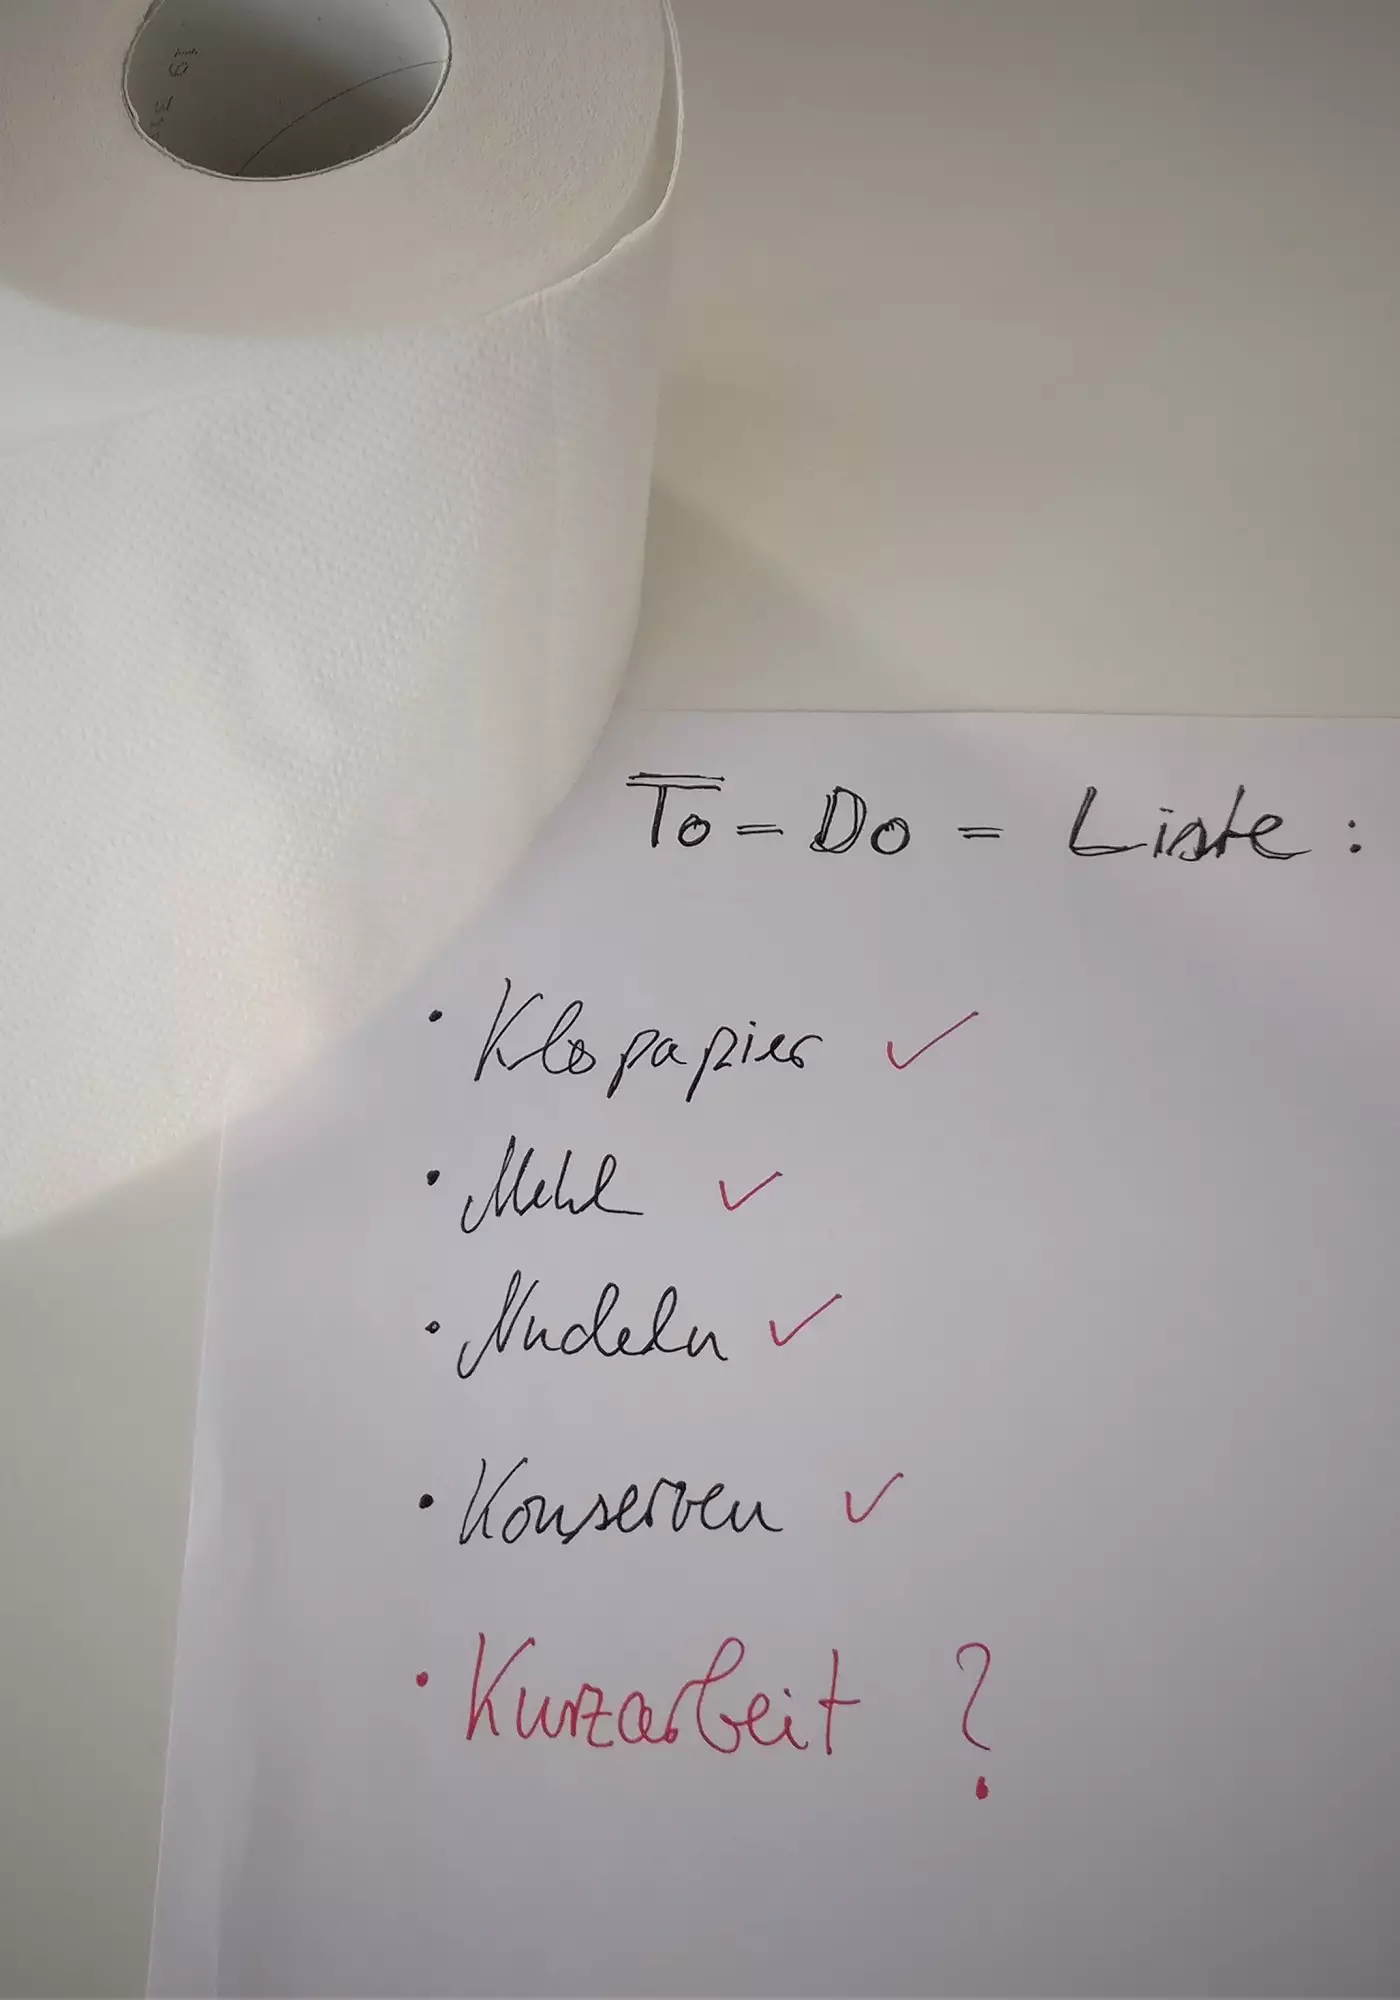 To=Do=Liste:
• Klopapier ✓
• Mehl ✓
• Nudeln ✓
• Konserven ✓
• Kurzarbeit ?